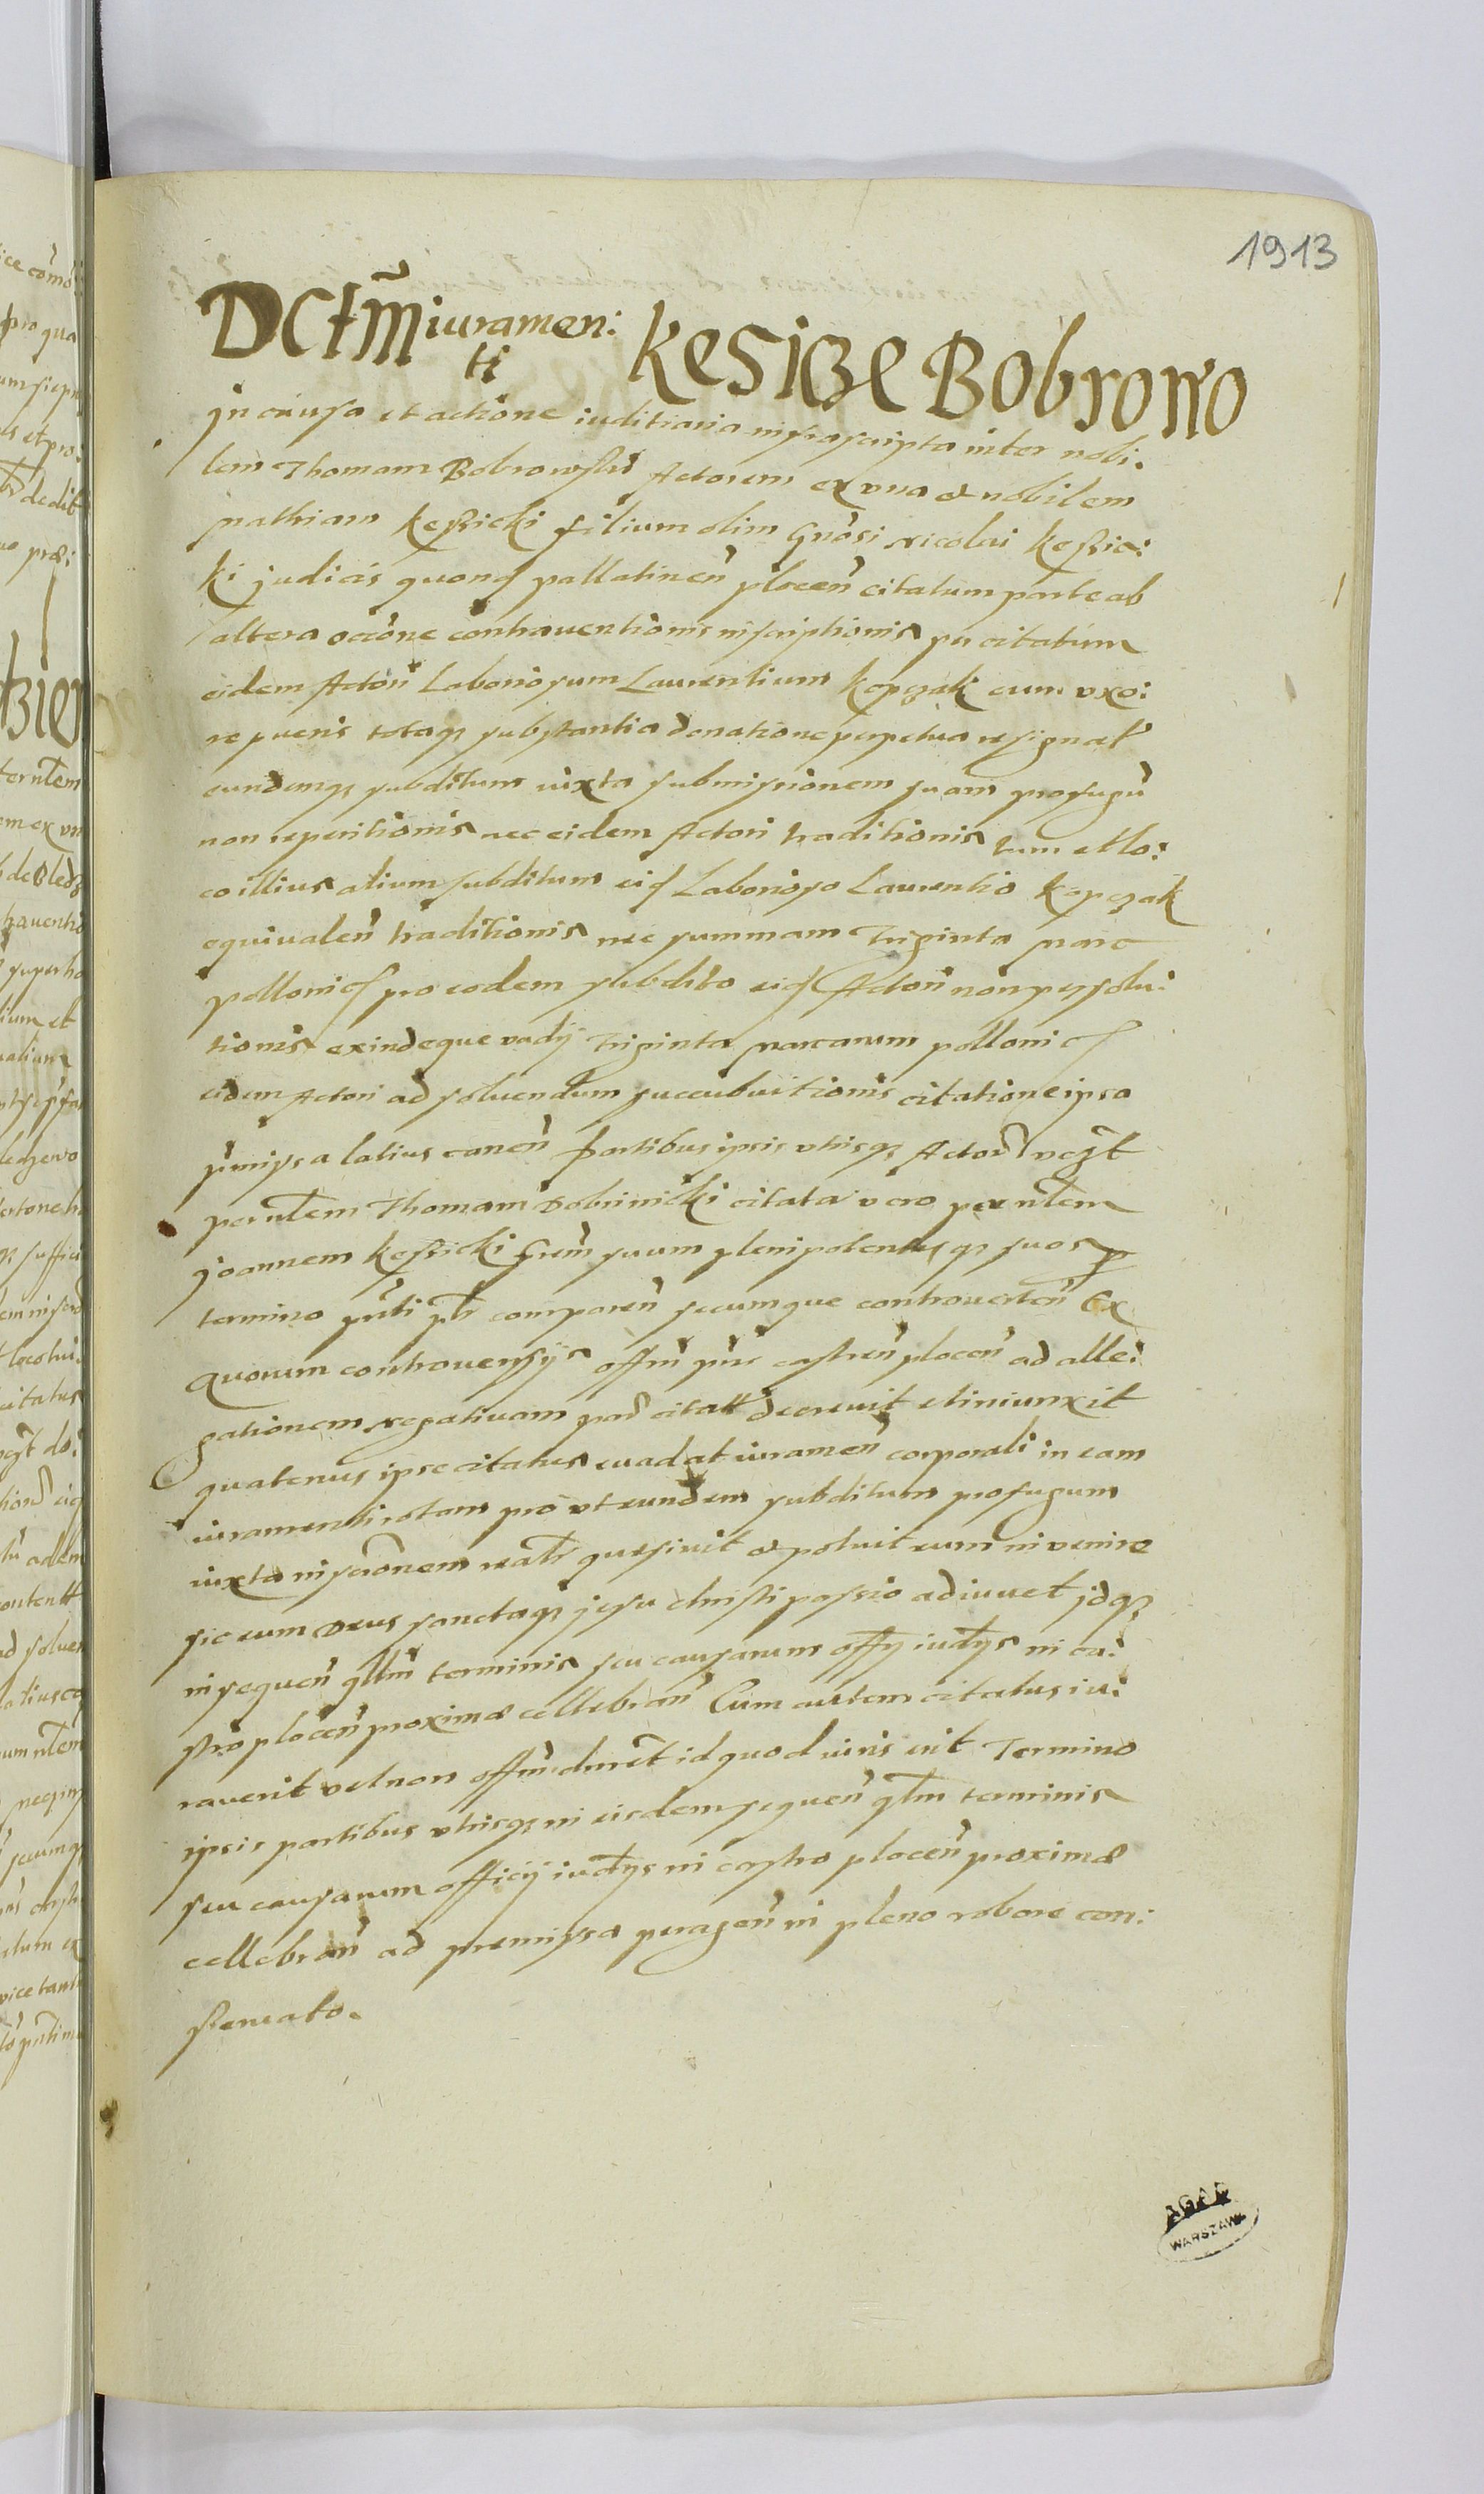 1913
DCTM̃ iuramen:
ti
KESICZE BOBROWO
Jn causa et actione iuditiaria infrascripta inter nobi:
lem Thomam Bobrowski Actorem ex vna et nobilem
Mathiam Kessicki filium olim Gnosi Nicolai Kessic:
ki judicis quond pallatinen plocen citatum parte ab
altera oc̃ione contrauentionis inscriptionis per citatum
eidem Actori Laboriosum Laurentium Kopczak cum vxo:
re pueris totaq substantia donatione perpetua resignat
eundemq subditum iuxta submissionem suam profugu
non reperitionis nec eidem Actori traditionis tum et lo:
co illius alium subditum eid Laborioso Laurentio Kopczak
equivalen traditionis nec summam Triginta Marc
pollonic pro eodem subdito eid Actori non persolu:
tionis exindeque vadij Triginta Marcarum pollonic
eidem Actori ad soluendum succubuitionis citatione ipsa
premissa latius canen Partibus ipsis vtrisq Actor
per nlem Thomam Dobrinicki citata vero per nlem
Joannem Kessicki frem suum plenipotentes q suos
termino pnti pr comparen secumque controuerten Ex
Quorum controuersijs offm pns castren plocen ad alle:
gationem Negatiuam par citatt decreuit et iniunxit
quatenus ipse citatus euadat iuramen corporali in eam
iuramenti rotam pro vt eundem subditum profugum
iuxta inscrionem quesiuit et potuit eum inuenire
sic eum Deus sanctaq Jesu christi passio adiuuet Jdq
in sequen qllm terminis seu causarum offy iudys in ca:
stro plocen proxime cellebran Cum autem citatus iu:
rauerit vel non offm id quod iuris erit Termino
ipsis partibus vtrisq in eisdem sequen qlm terminis
seu causarum officij iudys in castro plocen proxime
cellebran ad premissa peragen in pleno robore con:
seruato.
AGAD
WARSZAWA